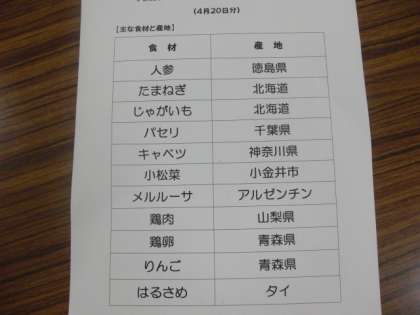 (4月20日分)
【主な食材と産地】
食材 産地
人参 徳島県
たまねぎ 北海道
じゃがいも 北海道
パセリ 千葉県
キャベツ 神奈川県
小松菜 小金井市
メルルーサ アルゼンチン
鶏肉 山梨県
鶏卵 青森県
りんご 青森県
はるさめ タイ